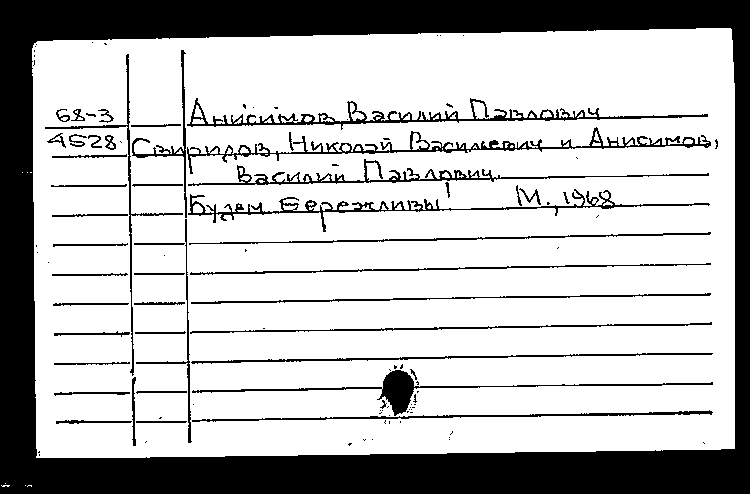 68-3 Анисимов, Василий Павлович
4528 Свиридов, Николай Васильевич и Анисимов,
Василий Павлович.
Будем бережливы! М., 1968.